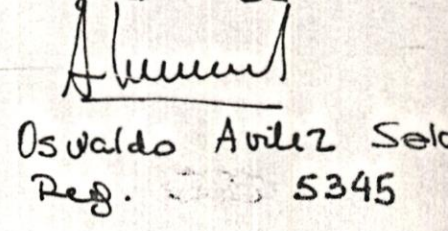 Osvaldo Avilez
Reg. 5345